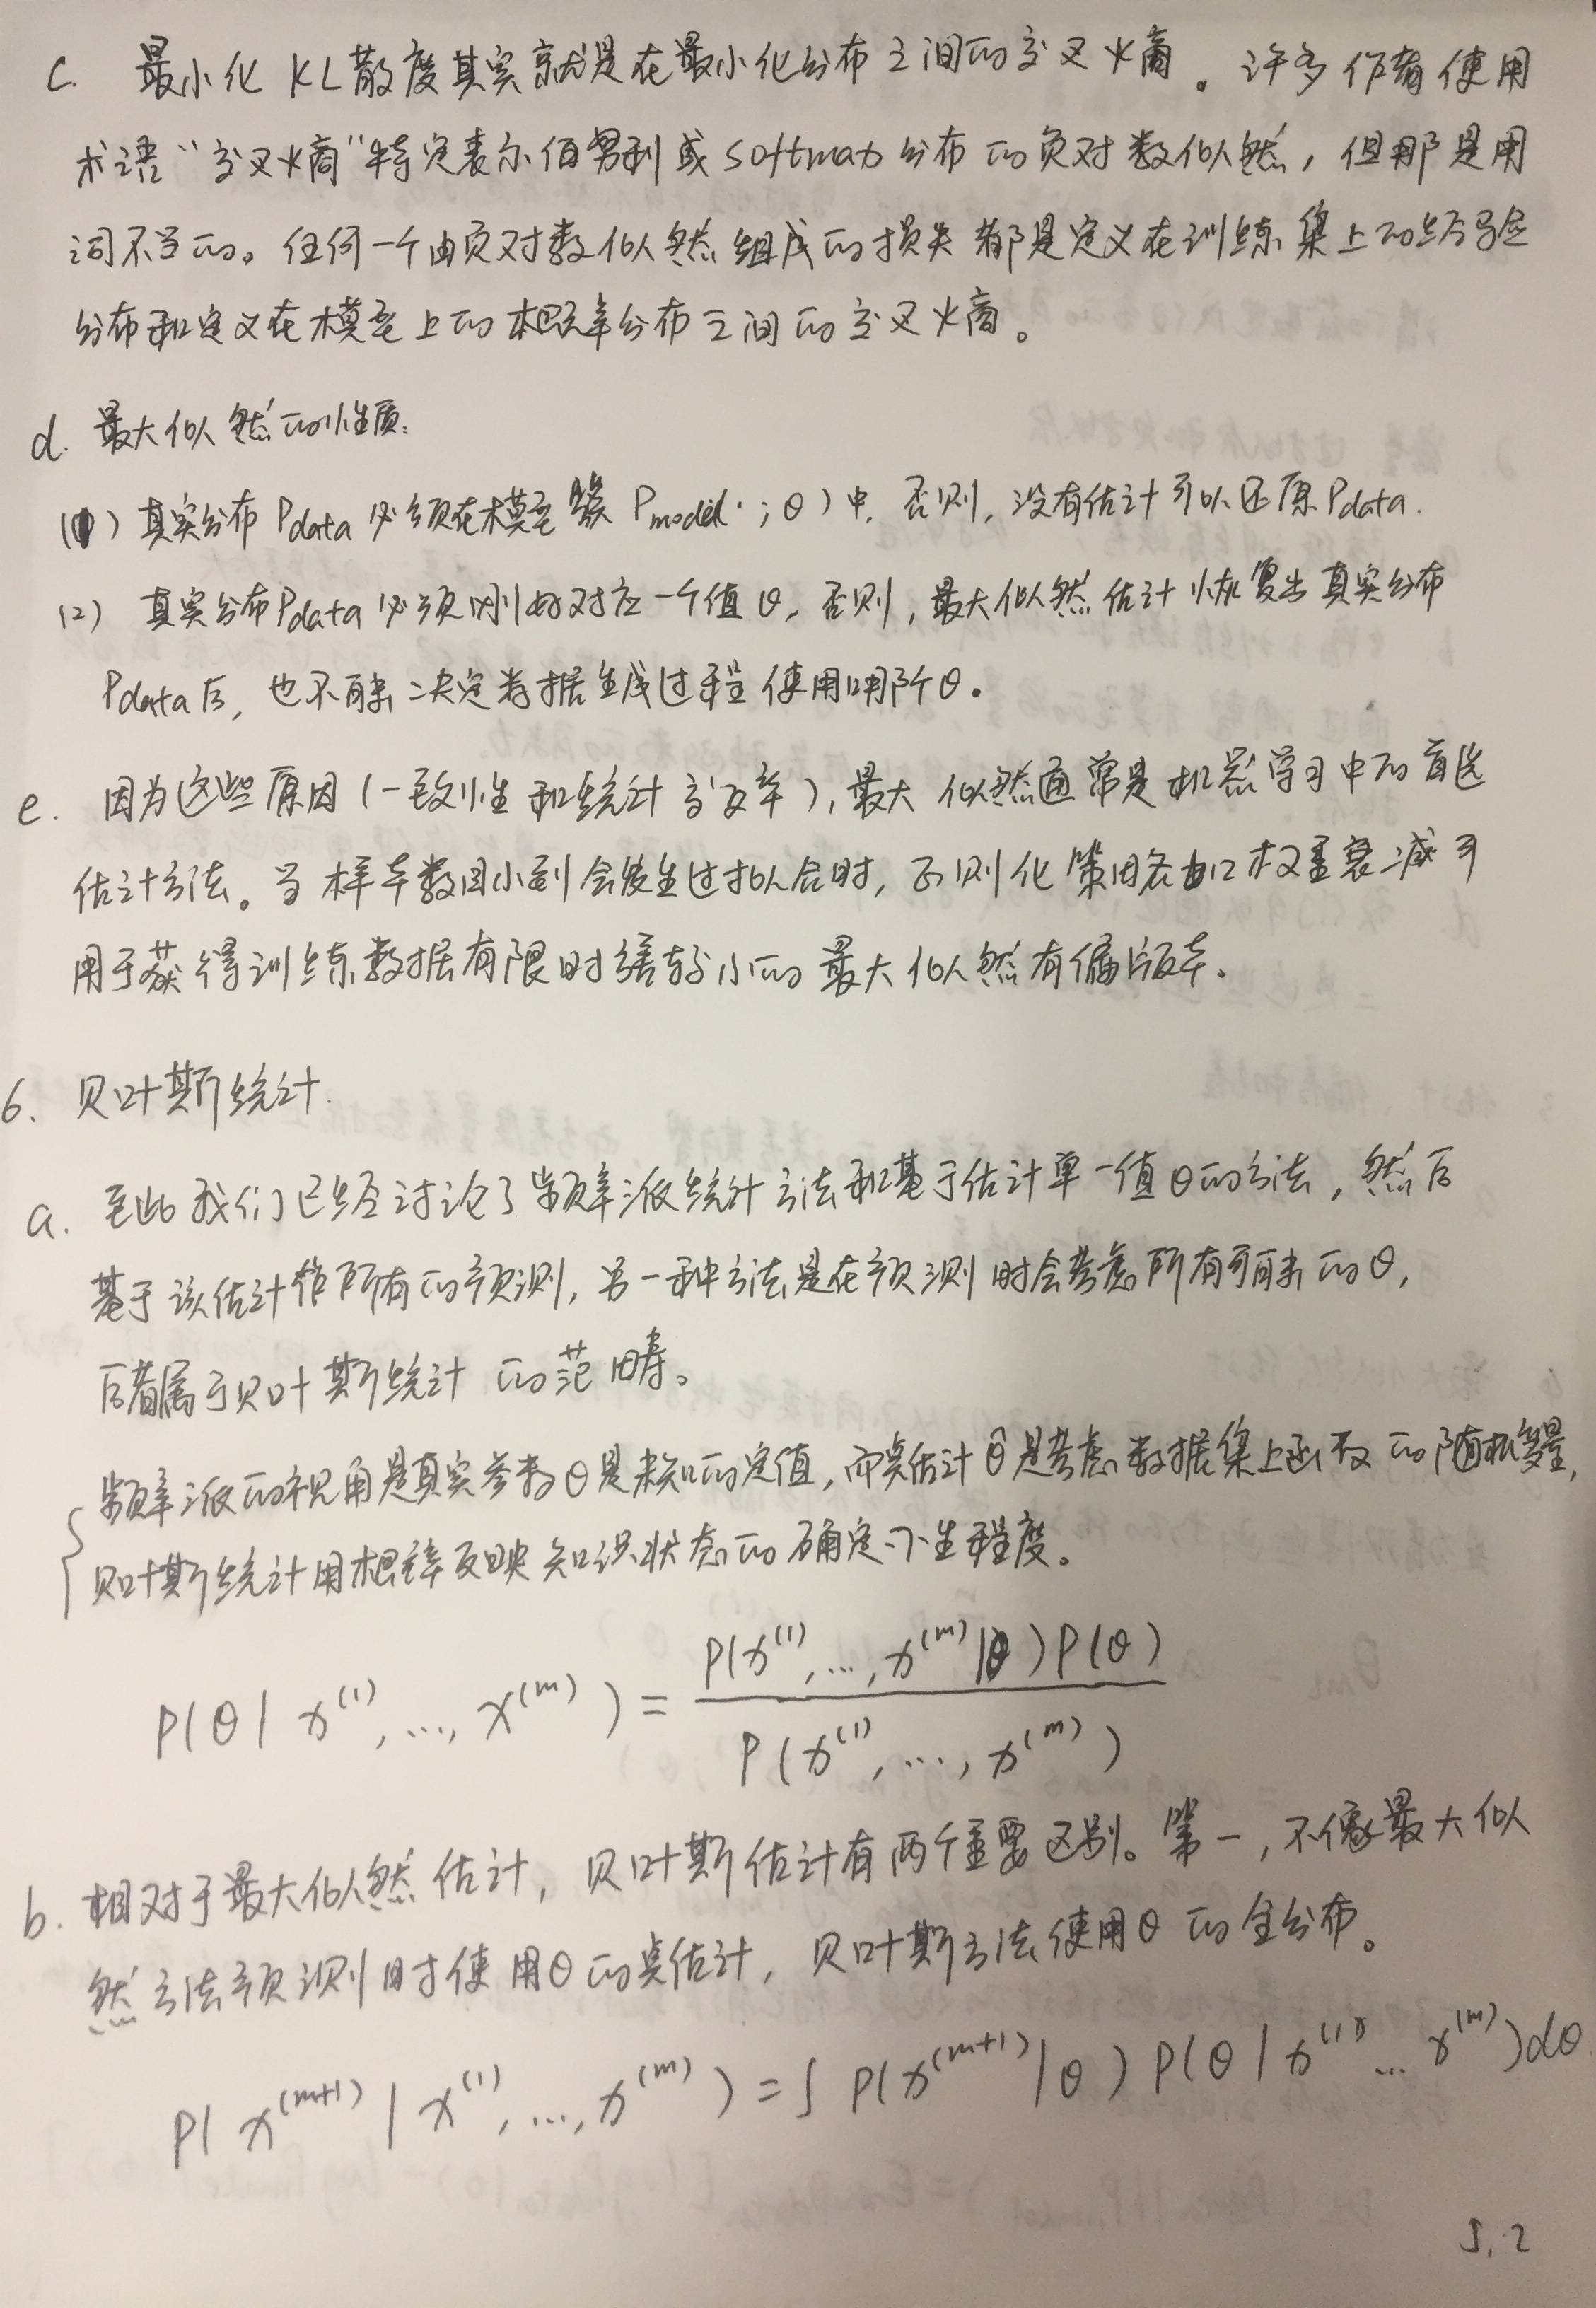 c. 最小化 KL散度其实就是在最小化分布之间的交叉熵。许多作者使用
术语“交叉熵”特定表示伯努利或softmax分布的负对数似然，但那是用
词不当的。任何一个由负对数似然组成的损失都是定义在训练集上的经验
分布和定义在模型上的概率分布之间的交叉熵。
d. 最大似然的性质:
(1) 真实分布Pdata必须在模型簇Pmodel(·;θ)中. 否则, 没有估计可以还原Pdata.
(2) 真实分布Pdata必须刚好对应一个值θ, 否则, 最大似然估计恢复出真实分布
Pdata后, 也不能决定数据生成过程使用哪个θ。
e. 因为这些原因(一致性和统计效率), 最大似然通常是机器学习中的首选
估计方法。当样本数目小到会发生过拟合时, 正则化策略如权重衰减可
用于获得训练数据有限时方差较小的最大似然有偏版本.
6. 贝叶斯统计.
a. 至此我们已经讨论了频率派统计方法和基于估计单一值θ的方法, 然后
基于该估计作所有的预测, 另一种方法是在预测时会考虑所有可能的θ,
后者属于贝叶斯统计的范畴。
频率派的视角是真实参数θ是未知的定值, 而点估计θ̂是考虑数据集上函数的随机变量,
贝叶斯统计用概率反映知识状态的确定性程度。
P(θ | x^(1), ..., x^(m)) = P(x^(1), ..., x^(m) | θ) P(θ) / P(x^(1), ..., x^(m))
b. 相对于最大似然估计, 贝叶斯估计有两个重要区别。第一, 不像最大似
然方法预测时使用θ的点估计, 贝叶斯方法使用θ的全分布。
P(x^(m+1) | x^(1), ..., x^(m)) = ∫ P(x^(m+1) | θ) P(θ | x^(1) ... x^(m)) dθ.
5.2